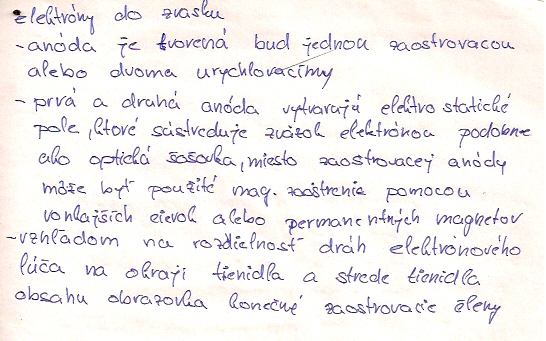 elektróny do zväsku
- anóda je tvorená bud jednou zaostrovacou
alebo dvoma urychlovacímy
- prvá a druhá anóda vytvarajú elektro statické
pole, ktoré sústreduje zväzok elektrónou podobne
ako optická šošovka, miesto zaostrovacej anódy
môže byť použité mag. zaoštrenie pomocou
vonkajších cievok alebo permanentných magnetov
- vzhľadom na rozdielnosť dráh elektrónového
lúča na okraji tienidla a strede tienidla
obsahu obrazovka konečné zaostrovacie členy